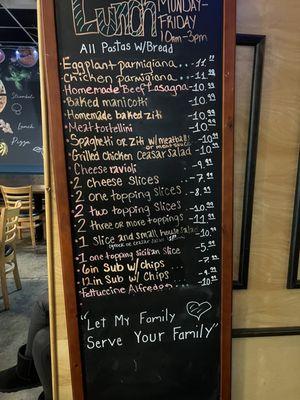 Lunch MONDAY-
FRIDAY
10am-3pm
All Pastas w/Bread
Eggplant parmigiana... -11.99
Chicken parmigiana... -11.99
Homemade Beef Lasagna -10.99
Baked manicotti -10.99
Homemade baked ziti -10.99
Meat tortellini -10.99
Spaghetti or ziti w/meatball -10.99
or meat sauce
Grilled Chicken Ceasar Salad -10.99
Cheese ravioli -9.99
2 Cheese slices -7.99
2 one topping slices -8.99
2 two topping slices -10.99
2 three or more toppings -11.99
1 slice and small house salad -10.99
1 one topping sicilian slice -5.99
6in Sub w/ chips
12in Sub w/ chips
Fettuccine Alfredo -10.99
"Let My Family
Serve Your Family"
Stromboli
Lunch
Pizza